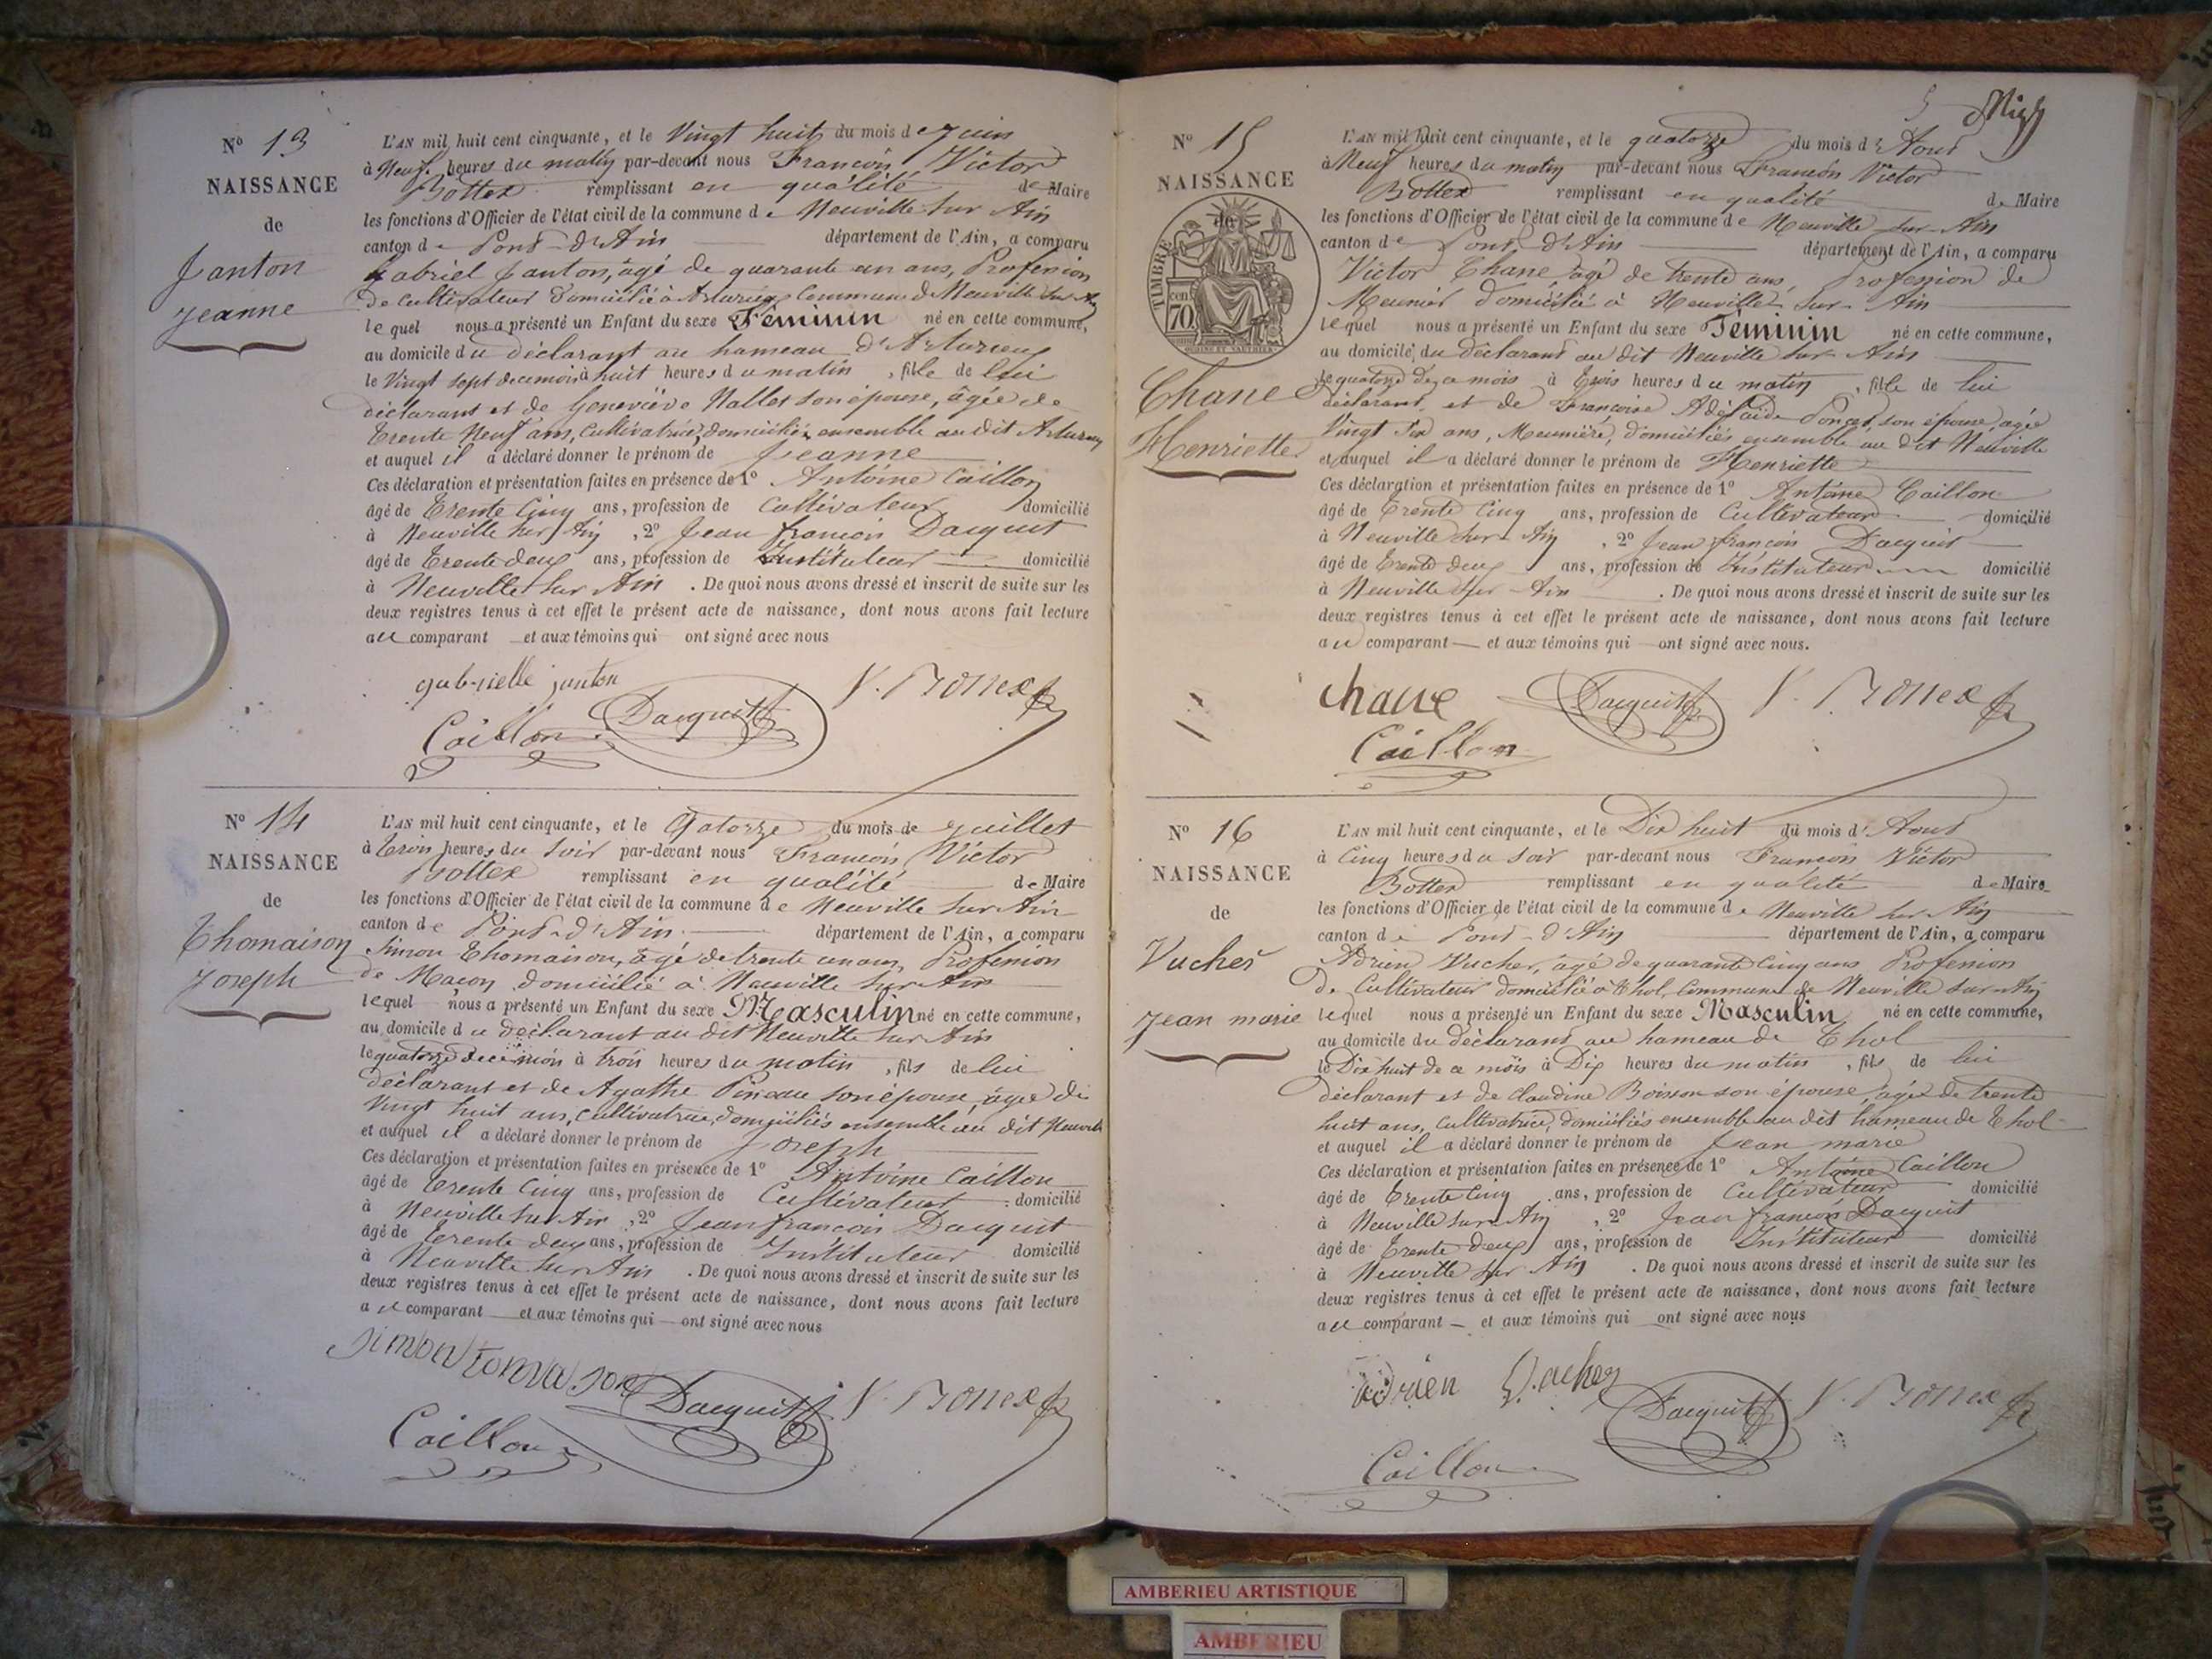 N° 13
NAISSANCE
de
Janton
Jeanne
L'AN mil huit cent cinquante, et le Vingt huit du mois de Juin
à Neuf heures du matin par-devant nous François Victor
Bottex remplissant en qualité de Maire
les fonctions d'Officier de l'état civil de la commune de Neuville sur Ain
canton de Pont-d'Ain département de l'Ain, a comparu
Gabriel Janton, âgé de quarante un ans, Profession
de cultivateur domicilié à Commune de Neuville sur Ain
lequel nous a présenté un Enfant du sexe Féminin né en cette commune,
au domicile du déclarant au hameau
le Vingt sept de ce mois à huit heures du matin, fille de lui
déclarant et de Geneviève Nallet son épouse, âgée de
trente Neuf ans, Cultivatrice, domiciliés ensemble au dit
et auquel il a déclaré donner le prénom de Jeanne
Ces déclaration et présentation faites en présence de 1° Antoine Caillon
âgé de trente Cinq ans, profession de Cultivateur domicilié
à Neuville sur Ain, 2° Jean françois Dacquit
âgé de trente deux ans, profession de Instituteur domicilié
à Neuville sur Ain. De quoi nous avons dressé et inscrit de suite sur les
deux registres tenus à cet effet le présent acte de naissance, dont nous avons fait lecture
au comparant et aux témoins qui ont signé avec nous
gabrielle janton
Dacquit
V. Bottex
Caillon
N° 14
NAISSANCE
de
Thomaison
Joseph
L'AN mil huit cent cinquante, et le Qatorze du mois de Juillet
à trois heures du soir par-devant nous François Victor
Bottex remplissant en qualité de Maire
les fonctions d'Officier de l'état civil de la commune de Neuville sur Ain
canton de Pont-d'Ain département de l'Ain, a comparu
Simon Thomaison, âgé de trente un ans, Profession
de Maçon domicilié à Neuville sur Ain
lequel nous a présenté un Enfant du sexe Masculin né en cette commune,
au domicile du déclarant au dit Neuville sur Ain
le quatorze de ce mois à trois heures du matin, fils de lui
déclarant et de Agathe Pineau son épouse âgée de
Vingt huit ans, cultivatrice, domiciliés ensemble au dit Neuville
et auquel il a déclaré donner le prénom de Joseph
Ces déclaration et présentation faites en présence de 1° Antoine Caillon
âgé de trente Cinq ans, profession de Cultivateur domicilié
à Neuville sur Ain, 2° Jean françois Dacquit
âgé de trente deux ans, profession de Instituteur domicilié
à Neuville sur Ain. De quoi nous avons dressé et inscrit de suite sur les
deux registres tenus à cet effet le présent acte de naissance, dont nous avons fait lecture
au comparant et aux témoins qui ont signé avec nous
simon
Dacquit
V. Bottex
Caillon
N° 15
NAISSANCE
de
TIMBRE
cen
70
Chane
Henriette
L'AN mil huit cent cinquante, et le quatorze du mois d'Aout
à Neuf heures du matin par-devant nous François Victor
Bottex remplissant en qualité de Maire
les fonctions d'Officier de l'état civil de la commune de Neuville sur Ain
canton de Pont d'Ain département de l'Ain, a comparu
Victor Chane âgé de trente ans, Profession de
Meunier domicilié à Neuville sur Ain
lequel nous a présenté un Enfant du sexe Féminin né en cette commune,
au domicile du déclarant au dit Neuville sur Ain
le quatorze de ce mois à trois heures du matin, fille de lui
déclarant, et de Françoise Adélaïde Poncet, son épouse, agée
Vingt Six ans, Meunière, domiciliés ensemble au dit Neuville
et auquel il a déclaré donner le prénom de Henriette
Ces déclaration et présentation faites en présence de 1° Antoine Caillon
âgé de trente Cinq ans, profession de Cultivateur domicilié
à Neuville sur Ain, 2° Jean françois Dacquit
âgé de trente deux ans, profession de Instituteur domicilié
à Neuville sur Ain. De quoi nous avons dressé et inscrit de suite sur les
deux registres tenus à cet effet le présent acte de naissance, dont nous avons fait lecture
au comparant et aux témoins qui ont signé avec nous.
Dacquit
V. Bottex
Caillon
N° 16
NAISSANCE
de
Vucher
Jean marie
L'AN mil huit cent cinquante, et le Dix huit du mois d'Aout
à Cinq heures du soir par-devant nous François Victor
Bottex remplissant en qualité de Maire
les fonctions d'Officier de l'état civil de la commune de Neuville sur Ain
canton de Pont-d'Ain département de l'Ain, a comparu
Adrien Vucher, âgé de quarante Cinq ans Profession
De Cultivateur domicilié à Thol, Commune de Neuville sur Ain
lequel nous a présenté un Enfant du sexe Masculin né en cette commune,
au domicile du déclarant au hameau de Thol
le Dix huit de ce mois à Dix heures du matin, fils de lui
déclarant et de Claudine Boisson son épouse, agée de trente
huit ans, cultivatrice, domiciliés ensemble au dit hameau de Thol
et auquel il a déclaré donner le prénom de Jean marie
Ces déclaration et présentation faites en présence de 1° Antoine Caillon
âgé de trente Cinq ans, profession de Cultivateur domicilié
à Neuville sur Ain, 2° Jean françois Dacquit
âgé de trente deux ans, profession de Instituteur domicilié
à Neuville sur Ain. De quoi nous avons dressé et inscrit de suite sur les
deux registres tenus à cet effet le présent acte de naissance, dont nous avons fait lecture
au comparant et aux témoins qui ont signé avec nous
adrien
Dacquit
V. Bottex
Caillon
AMBERIEU ARTISTIQUE
AMBERIEU